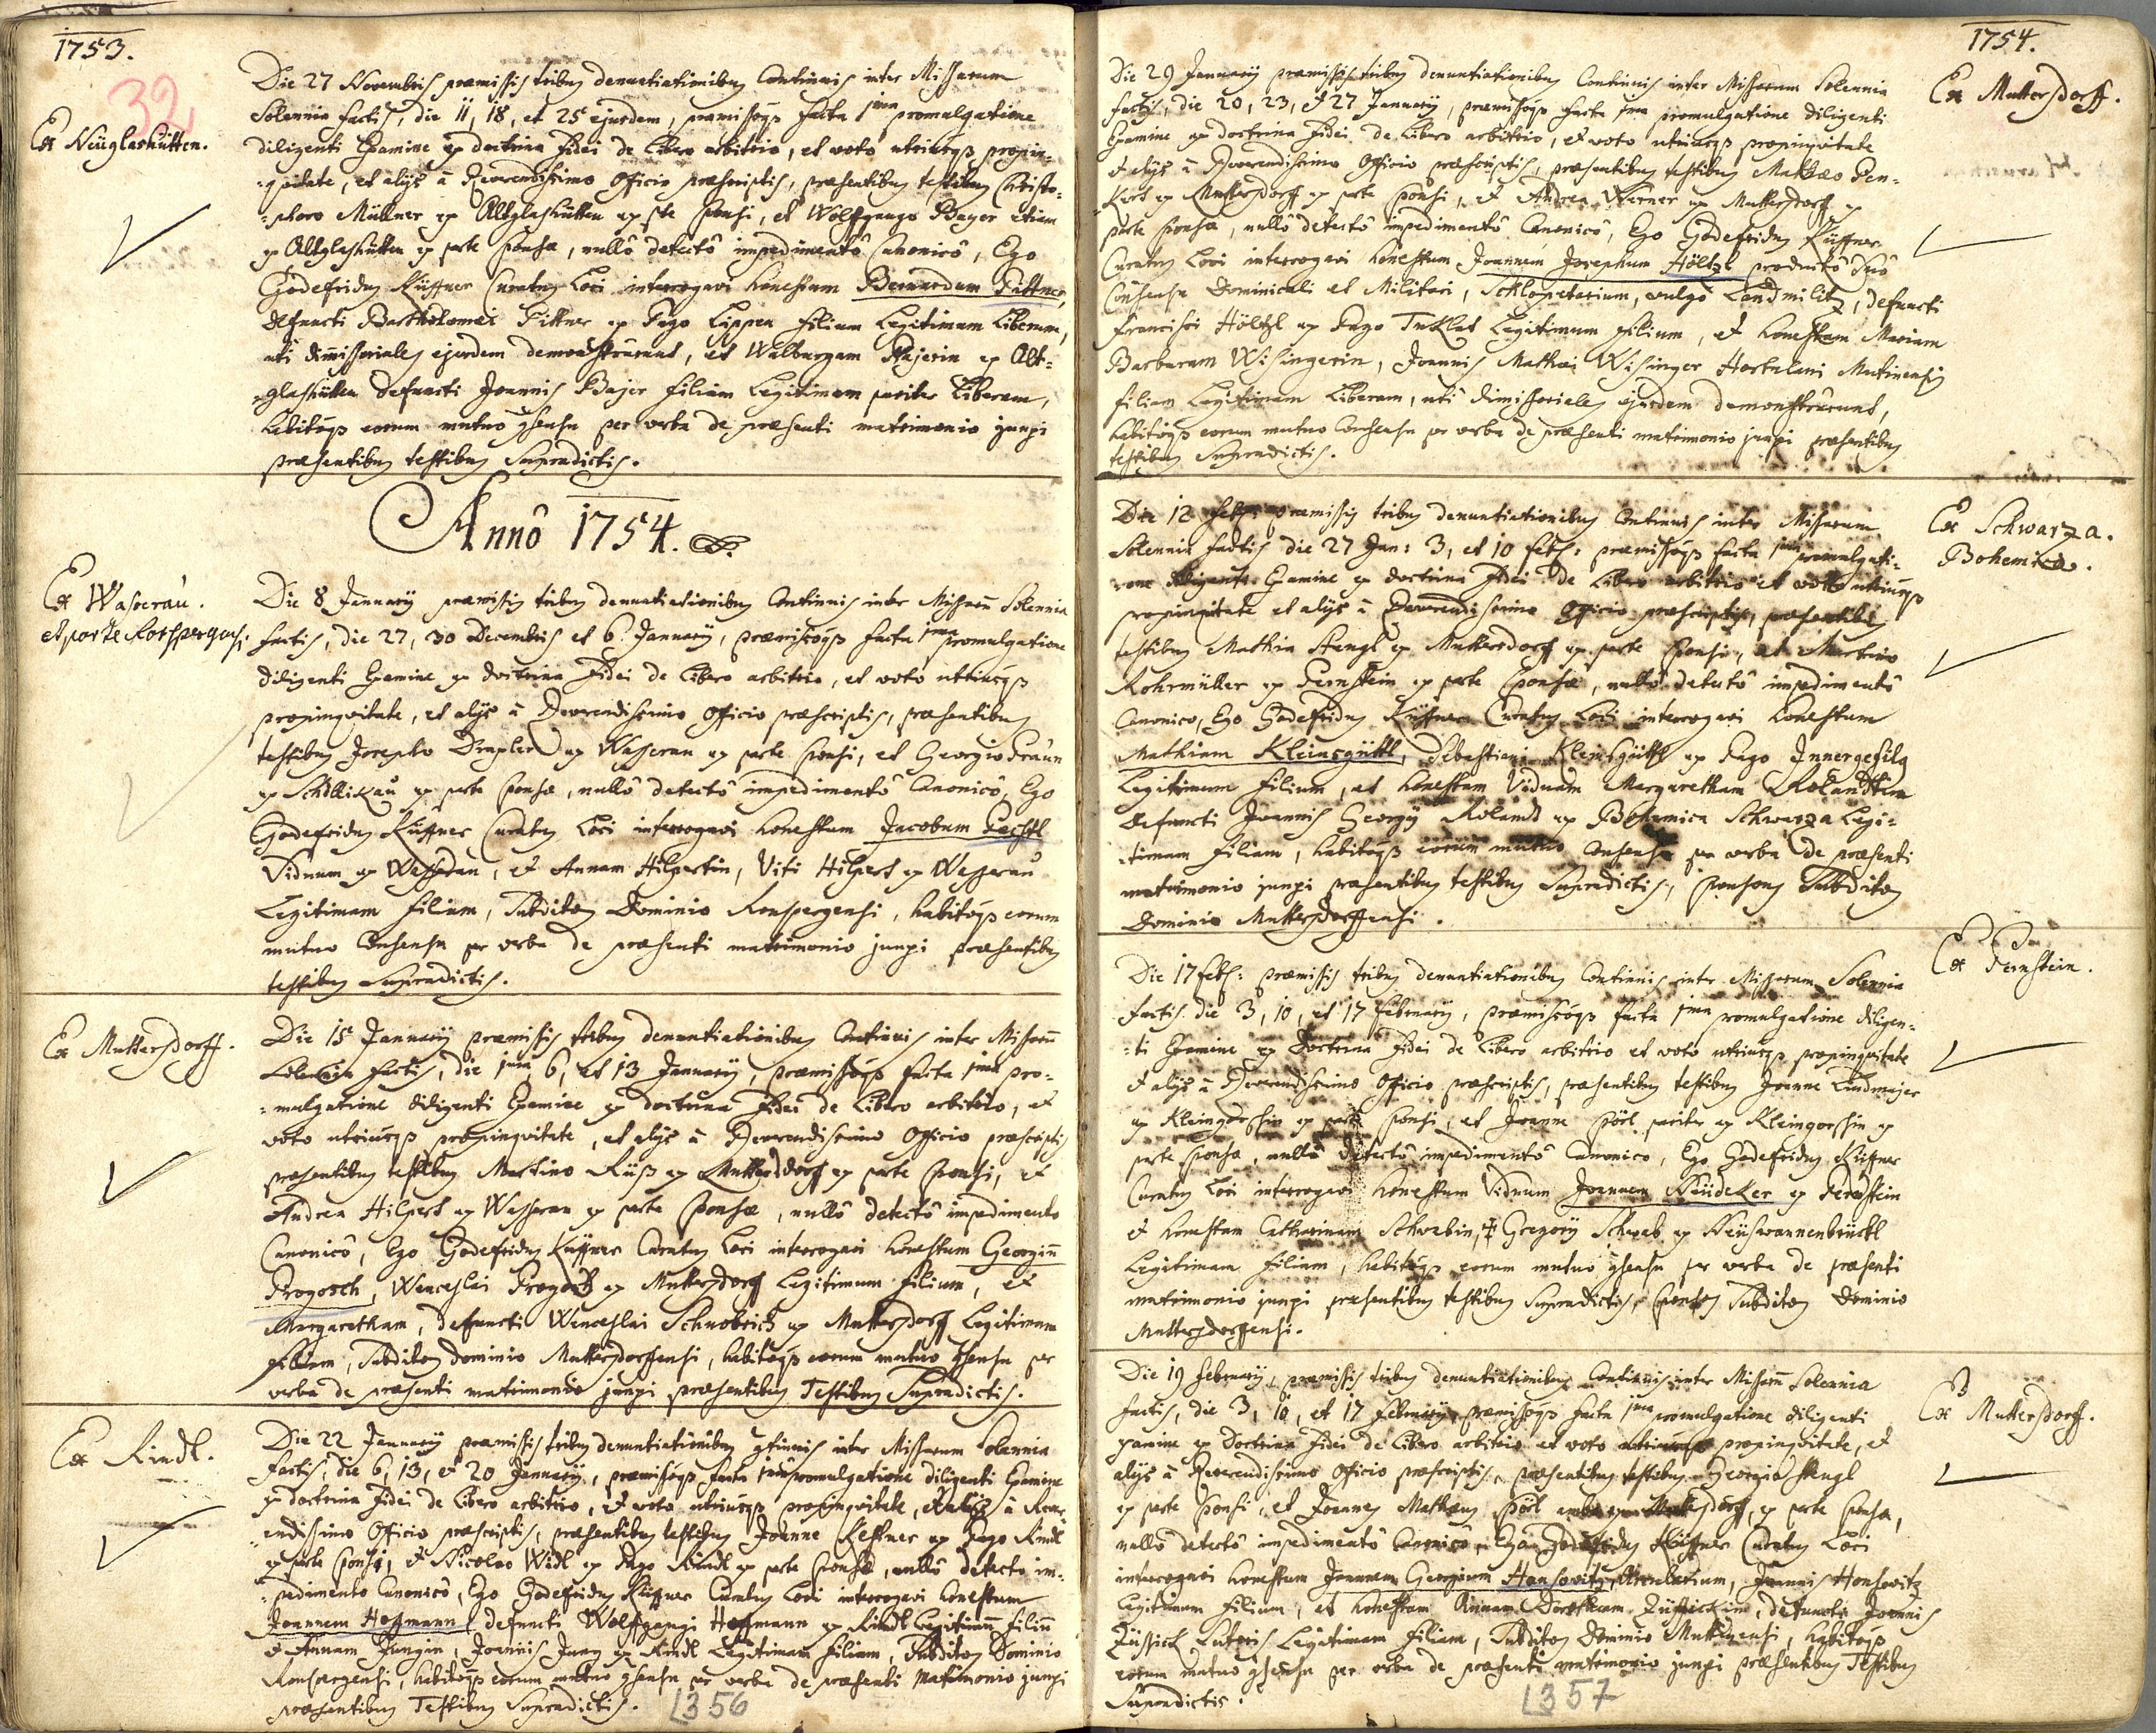 1753.
32
Ex Neüglashütten.
Die 27 Novembris præmissis tribus denuntiationibus Continuis inter Missarum
Solennia factis, die 11, 18, et 25 ejusdem, præmissâqȝ facta 1ma promulgatione
diligenti Examine ex doctrina Fidei de Libero arbitrio, et voto utriusqȝ propin=
=qvitate, et alijs â Reverendissimo Officio præscriptis, præsentibus testibus Christo=
=phoro Müllner ex Altglashütten ex pte Sponsi, et Wolffgango Bayer etiam
ex Altglashütten ex parte Sponsæ, nullô detectô impedimentô Canonicô, Ego
Godefridus Küffner Curatus Loci interrogavi honestum Bernardum Fittner,
defuncti Bartholomæi Fittner ex Pago Lippen filium Legitimum Liberum,
uti dimissoriales ejusdem demonstrârunt, et Walburgam Bajerin ex Alt=
=glashütten defuncti Joannis Bajer filiam Legitimam pariter Liberam,
habitôqȝ eorum mutuo ɔsensu per verba de præsenti matrimonio junxi
præsentibus testibus Supradictis.
Annô 1754.
Ex Wasserau.
et parte Ronspergensi.
Die 8 Januarij præmissis tribus denuntiationibus Continuis inter Missarũ Solennia
factis, die 27, 30 Decembris et 6 Januarij, præmissâqȝ facta 1ma promulgatione
diligenti Examine ex doctrina Fidei de Libero arbitrio, et voto utriusqȝ
propinqvitate, et alijs â Reverendissimo Officio præscriptis, præsentibus
testibus Josepho Drexler ex Wasserau ex parte Sponsi, et Georgio Braun
ex Schöllikau ex parte Sponsæ, nullô detectô impedimentô Canonicô, Ego
Godefridus Küffner Curatus Loci interrogavi honestum Jacobum
Viduum ex Wasserau, et Annam Hilpertin, Viti Hilpert ex Wasserau
Legitimam filiam, Subditos Dominio Ronspergensi, habitôqȝ eorum
mutuo Consensu per verba de præsenti matrimonio junxi præsentibus
testibus Supradictis.
Ex Muttersdorff.
Die 15 Januarij præmissis tribus denuntiationibus Continuis inter Missarũ
Solennia factis, die 1ma 6, et 13 Januarij, præmissâqȝ facta 1ma pro=
=mulgatione diligenti Examine ex doctrina Fidei de Libero arbitrio, et
voto utriusqȝ propinqvitate, et alijs â Reverendissimo Officio præscriptis
præsentibus testibus Martino Rüß ex Muttersdorff ex parte Sponsi, et
Andrea Hilpert ex Wasserau ex parte Sponsæ, nullô detectô impedimento
Canonicô, Ego Godefridus Küffner Curatus Loci interrogavi honestum Georgiũ
Progosch, Wenceslai Progosch ex Muttersdorff Legitimum filium, et
Margaretham, defuncti Wenceslai Schnobrich ex Muttersdorff Legitimam
filiam, Subditos Dominio Muttersdorffensi, habitôqȝ eorum mutuo ɔsensu per
verba de præsenti matrimonio junxi præsentibus Testibus Supradictis.
Ex Rindl.
Die 22 Januarij præmissis tribus denuntiationibus ɔtinuis inter Missarum Solennia
factis, die 6, 13, et 20 Januarij, præmissâqȝ facta 1ma promulgatione diligenti Examine
ex doctrina Fidei de Libero arbitrio, et voto utriusqȝ propinqvitate, et alijs â Rever=
=endissimo Officio præscriptis, præsentibus testibus Joanne Kestner ex Pago Rindl
ex parte Sponsi, et Nicolao Widl ex Pago Rindl ex parte Sponsæ, nullô detecto im=
=pedimento Canonicô, Ego Godefridus Küffner Curatus Loci interrogavi honestum
Joannem Hoffmann, defuncti Wolffgangi Hoffmann ex Rindl Legitimũ filiũ
et Annam Jungin, Joannis Jung ex Rindl Legitimam filiam, Subditos Dominio
Ronspergensi, habitôqȝ eorum mutuo ɔsensu per verba de præsenti Matrimonio junxi
præsentibus Testibus Supradictis.
L356
1754.
Ex Muttersdorff.
Die 29 Januarij præmissis tribus denuntiationibus Continuis inter Missarum Solennia
factis, die 20, 23, et 27 Januarij, præmissâqȝ facta 1ma promulgatione diligenti
Examine ex doctrina Fidei de Libero arbitrio, et voto utriusqȝ propinqvitate
et alijs â Reverendissimo Officio præscriptis, præsentibus testibus Mathæo Pen=
=kert ex Muttersdorff ex parte Sponsi, et Andrea Werner ex Muttersdorff ex
parte Sponsæ, nullô detectô impedimentô Canonicô, Ego Godefridus Küffner
Curatus Loci interrogavi honestum Joannem Josephum Höltzl productô Suô
Consensu Dominicali et Militari, Schlopetarium, vulgo Landmilitz, defuncti
Francisci Höltzl ex Pago Tuklat Legitimum filium, et honestam Mariam
Barbaram Wisingerin, Joannis Mathæi Wisinger Hortulani Mutinensis
filiam Legitimam Liberam, uti dimissoriales ejusdem demonstrârunt,
habitôqȝ eorum mutuo Consensu per verba de præsenti matrimonio junxi præsentibus
testibus Supradictis.
Ex Schwarza.
Bohemica.
Die 12 Febr: præmissis tribus denuntiationibus Continuis inter Missarum
Solennia factis die 27 Jan: 3, et 10 Febr: præmissâqȝ facta 1ma promulgati=
=one diligenti Examine ex doctrina Fidei de Libero arbitrio et voto utriusqȝ
propinqvitate et alijs â Reverendissimo Officio præscriptis, præsentibus
testibus Mathia Stengl ex Muttersdorff ex parte Sponsi, et Martino
Rohrmüller ex Fernstein ex parte Sponsæ, nullô detectô impedimentô
Canonico, Ego Godefridus Küffner Curatus Loci interrogavi honestum
Mathiam Kleinsgüttl, Sebastiani Kleinsgüttl ex Pago Innergefild
Legitimum filium, et honestam Viduam Margaretham Rolandtin
defuncti Joannis Georgij Roland ex Bohemica Schwarza Legi=
=timam filiam, habitôqȝ eorum mutuo Consensu per verba de præsenti
matrimonio junxi præsentibus testibus Supradictis, Sponsos Subditos
Dominio Muttersdorffensi.
Ex Fernstein.
Die 17 Febr: præmissis tribus denuntiationibus Continuis inter Missarum Solennia
factis die 3, 10, et 17 Februarij, præmissâqȝ facta 1ma promulgatione diligen=
=ti Examine ex Doctrina Fidei de Libero arbitrio et voto utriusqȝ propinqvitate
et alijs â Reverendissimo Officio præscriptis, præsentibus testibus Joanne Lindmajer
ex Kleingorschin ex parte Sponsi, et Joanne Pörl pariter ex Kleingorschin ex
parte Sponsæ, nullô detectô impedimentô Canonico, Ego Godefridus Küffner
Curatus Loci interrogavi honestum Viduum Joannem Neüdeker ex Fernstein
et honestam Catharinam Schwabin, ‡ Gregorij Schwab ex Neüswannenbrückl
Legitimam filiam, habitôqȝ eorum mutuo ɔsensu per verba de præsenti
matrimonio junxi præsentibus testibus Supradictis, Sponsos Subditos Dominio
Muttersdorffensi.
Ex Muttersdorff.
Die 19 Februarij, præmissis tribus denuntiationibus Continuis inter Missarũ Solennia
factis, die 3, 10, et 17 Februarij, præmissâqȝ facta 1ma promulgatione diligenti
Examine ex Doctrina Fidei de Libero arbitrio et voto utriusqȝ propinqvitate, et
alijs â Reverendissimo Officio præscriptis, præsentibus testibus Georgio Stengl
ex parte Sponsi, et Joannes Mathæus Pörl ambo ex Muttersdorff, ex parte Sponsæ,
nullô detectô impedimentô Canonicô, Ego Godefridus Küffner Curatus Loci
interrogavi honestum Joannem Georgium Hansowitz, Joannis Hansowitz
Legitimum filium, et honestam Annam Dorotheam Züssickin, defuncti Joannis
Züssick Legitimam filiam, Subditos Dominio Muttinensi, habitôqȝ
eorum mutuo ɔsensu per verba de præsenti matrimonio junxi præsentibus Testibus
Supradictis.
L357